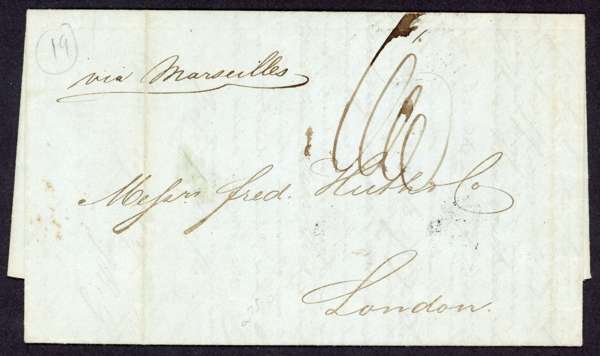 19
via Marseilles
Messrs Fred. Huth & Co
London.